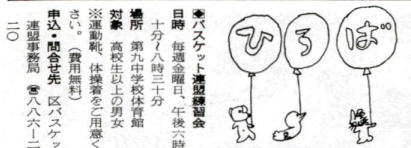 ひろば
◆バスケット連盟練習会
日時 毎週金曜日、午後六時
十分～八時三十分
場所 第九中学校体育館
対象 高校生以上の男女
※運動靴、体操着をご用意く
さい。（費用無料）
申込・問合せ先 区バスケッ
連盟事務局 ☎八八六ー二
二〇